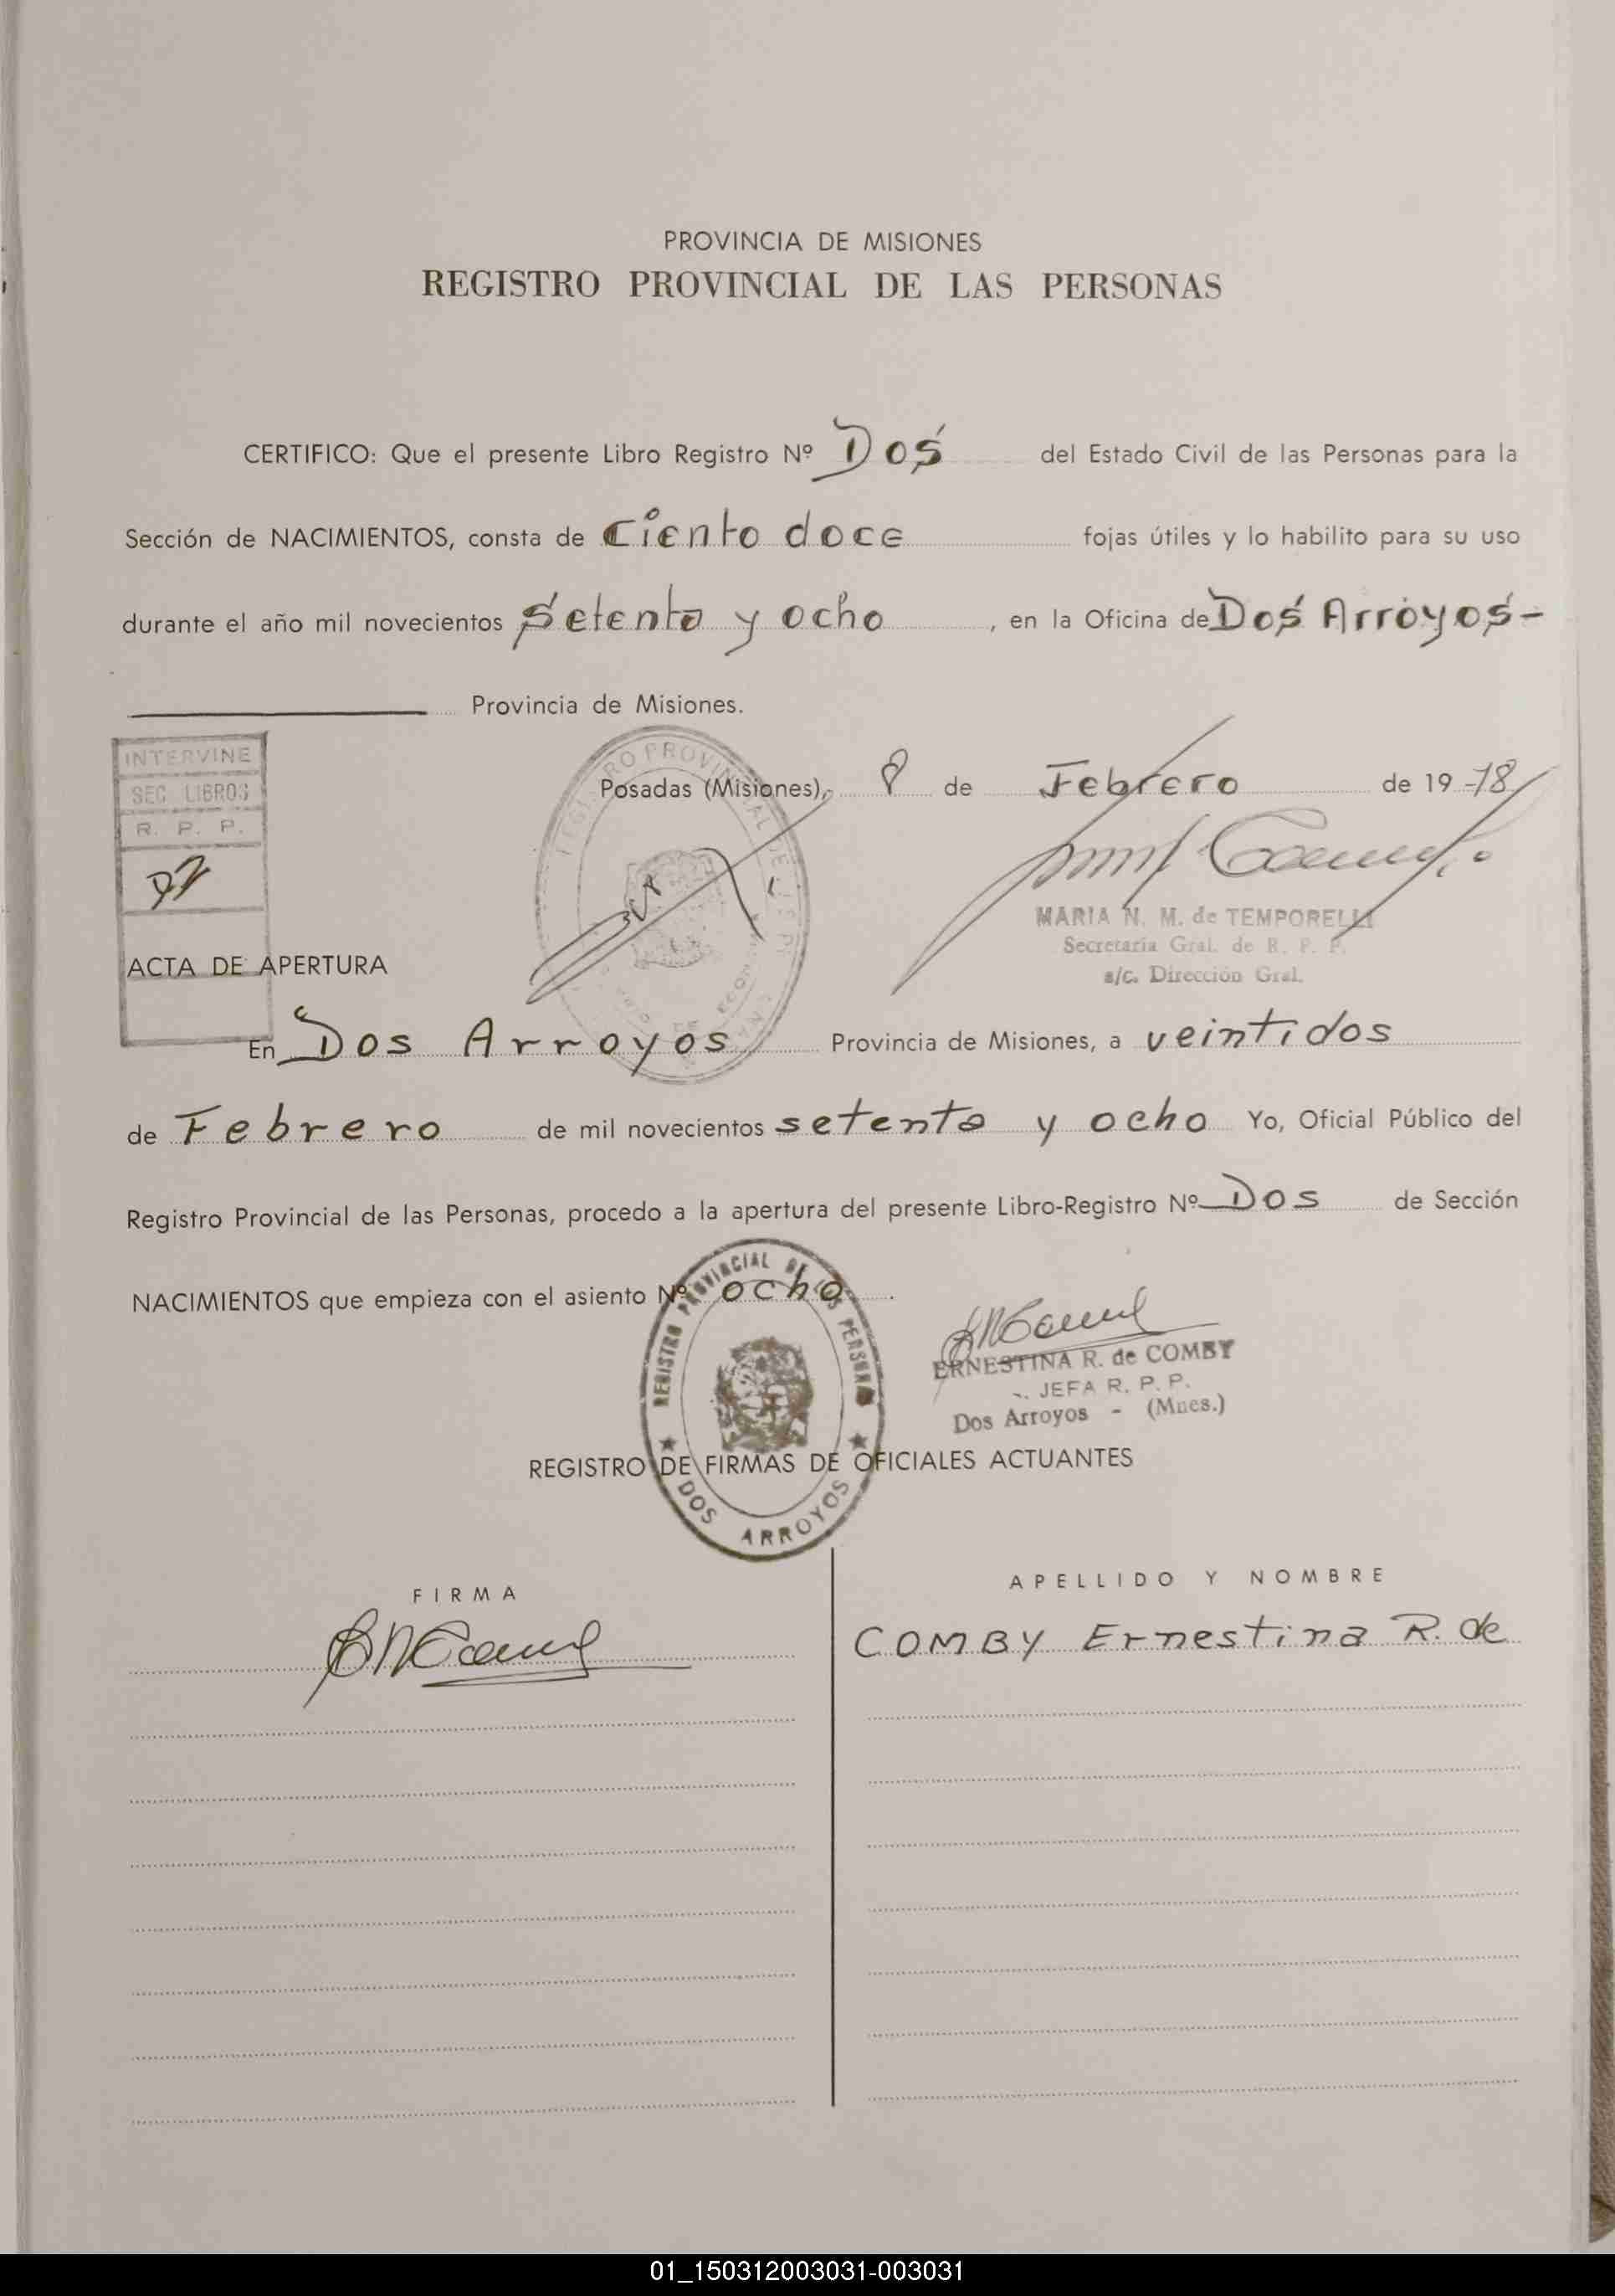 PROVINCIA DE MISIONES
REGISTRO PROVINCIAL DE LAS PERSONAS
CERTIFICO: Que el presente Libro Registro Nº Dos del Estado Civil de las Personas para la
Sección de NACIMIENTOS, consta de Ciento doce fojas útiles y lo habilito para su uso
durante el año mil novecientos Setenta y ocho, en la Oficina de Dos Arroyos-
Provincia de Misiones.
INTERVINE
SEC. LIBROS
R. P. P.
Posadas (Misiones), 8 de Febrero de 1978
MARIA N. M. de TEMPORELLI
Secretaria Gral. de R. P. P.
a/c. Dirección Gral.
ACTA DE APERTURA
En Dos Arroyos Provincia de Misiones, a veintidos
de Febrero de mil novecientos setenta y ocho Yo, Oficial Público del
Registro Provincial de las Personas, procedo a la apertura del presente Libro-Registro Nº Dos de Sección
NACIMIENTOS que empieza con el asiento Nº ocho.
REGISTRO PROVINCIAL DE LAS PERSONAS
DOS ARROYOS
ERNESTINA R. de COMBY
JEFA R. P. P.
Dos Arroyos - (Mnes.)
REGISTRO DE FIRMAS DE OFICIALES ACTUANTES
FIRMA
APELLIDO Y NOMBRE
COMBY Ernestina R. de
01_150312003031-003031